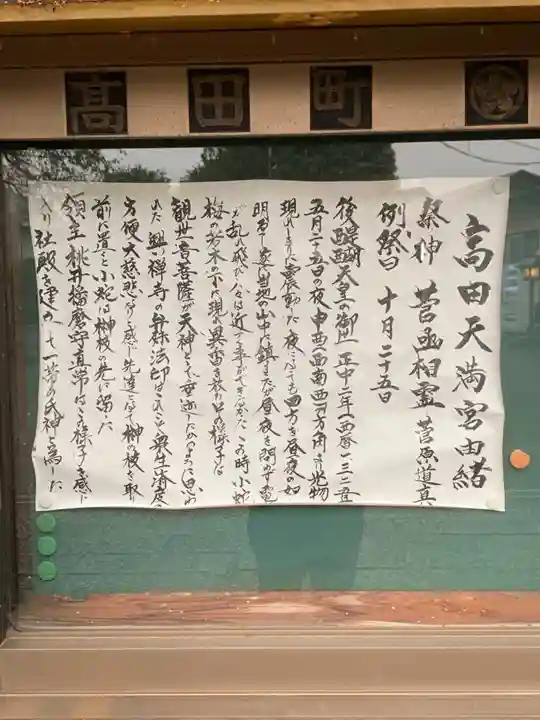 高田町
高田天満宮由緒
祭神 菅函相霊 菅原道真
例祭日 十月二十五日
後醍醐天皇の御世 正中二年(西暦一三二五)
五月二十五日の夜申酉西南西の方角より光物
現れ
震動した 夜にても四方を昼夜の如
明るし 家に当地の山中に鎮またが昼夜を問わず電
が乱れ飛び人々は近く事ができなかった この時小蛇
梅の若木の下に現れ異香を放ち
の様子は
観世音菩薩が天神として垂迹したかのように思わ
れた 興禅寺の弁
法印はこれこそ衆生済度の
方便 大慈悲
と感じ先達となって榊の枝を取り
前に置くと小蛇は榊枝の先に留った
領主桃井播磨守直常はこの様子を感じ
入り社殿を建立して一帯の氏神と為した